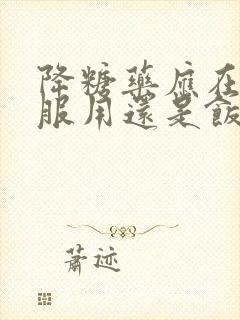 降糖藥應在
服用還是飯
蕭迹